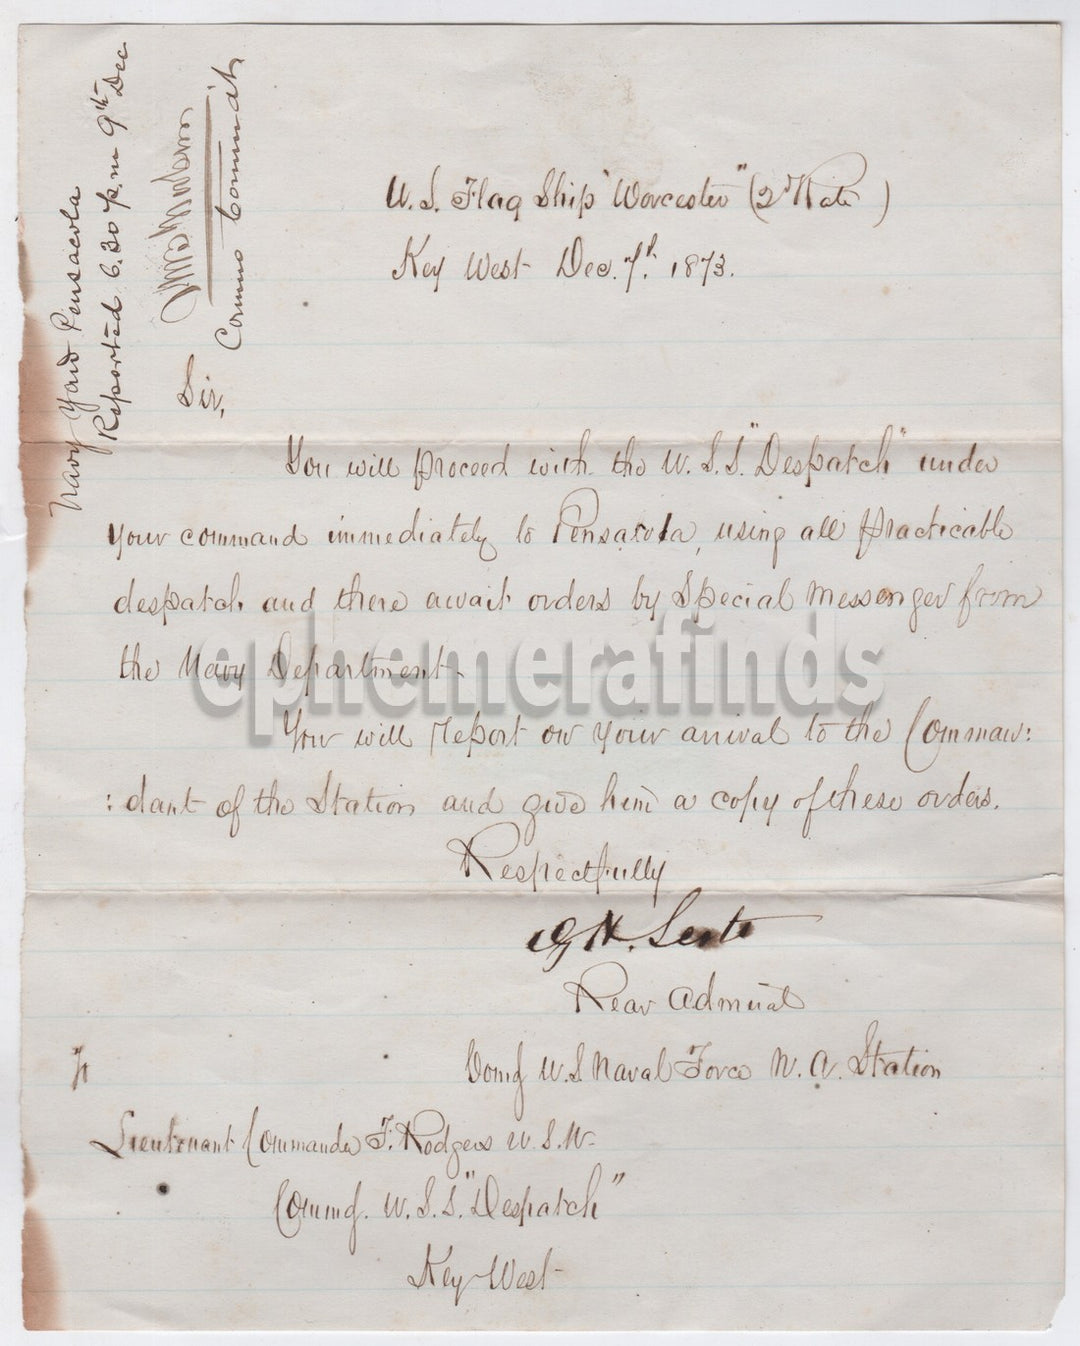 Navy Yard Pensacola
Reported 6.30 p.m 9th Dec
Como Commd't
U. S. Flag Ship "Worcester" (2d Rate)
Key West Dec. 7th. 1873.
Sir,
You will proceed with the U. S. S. "Despatch" under
your command immediately to Pensacola, using all practicable
despatch and there await orders by Special Messenger from
the Navy Department.
You will report on your arrival to the Comman:
:dant of the Station and give him a copy of these orders.
Respectfully
G H. Scott
Rear Admiral
Comdg U. S. Naval Force N. A. Station
To
Lieutenant Commander F. Rodgers U. S. N.
Commg. U. S. S. "Despatch"
Key West
ephemerafinds